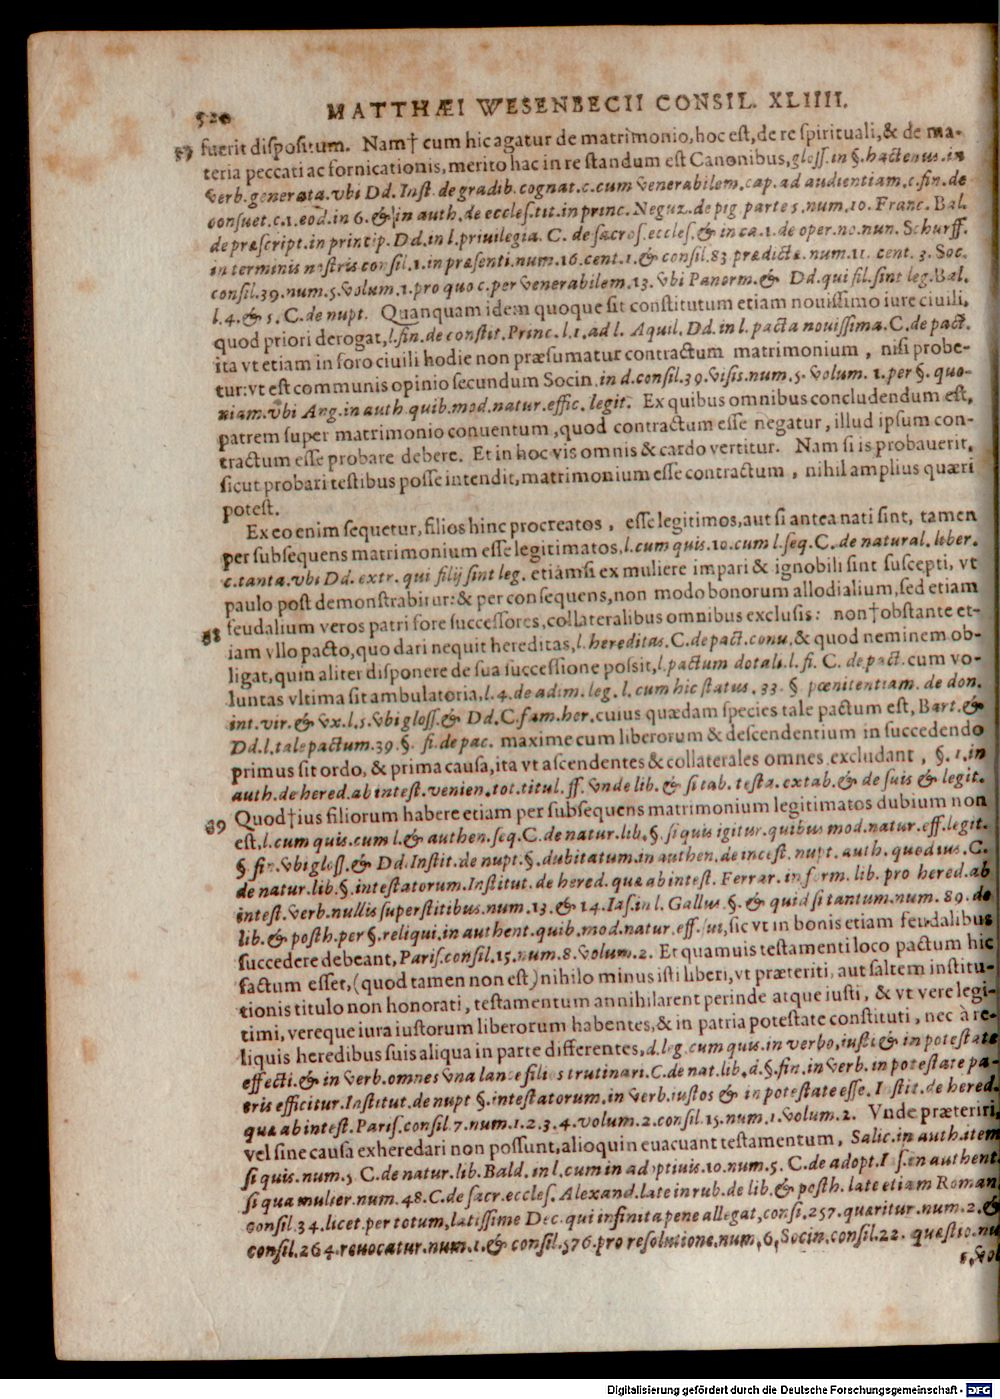 520 MATTHÆI WESENBECII CONSIL. XLIIII.
57 fuerit dispositum. Nam† cum hic agatur de matrimonio, hoc est, de re spirituali, & de ma-
teria peccati ac fornicationis, merito hac in re standum est Canonibus, gloss. in §. hactenus. in
verb. generata. vbi Dd. Inst. de gradib. cognat. c. cum venerabilem, cap. ad audientiam. c. fin. de
consuet. c. 1. eod. in 6. & in auth. de eccles. tit. in princ. Neguz. de pig. parte 5. num. 10. Franc. Bal.
de præscript. in princip. Dd. in l. priuilegia. C. de sacros. eccles. & in ca. 1. de oper. no. nun. Schurff.
in terminis nostris consil. 1. in præsenti. num. 16. cent. 1. & consil. 83 prædicta. num. 11. cent. 3. Soc.
consil. 39. num. 5. volum. 1. pro quo c. per venerabilem. 13. vbi Panorm. & Dd. qui fil. sint leg. Bal.
l. 4. & 5. C. de nupt. Quanquam idem quoque sit constitutum etiam nouissimo iure ciuili,
quod priori derogat, l. fin. de constit. Princ. l. 1. ad l. Aquil. Dd. in l. pacta nouissima. C. de pact.
ita vt etiam in foro ciuili hodie non præsumatur contractum matrimonium, nisi probe-
tur: vt est communis opinio secundum Socin. in d. consil. 39. visis. num. 5. volum. 1. per §. quo-
niam. vbi Ang. in auth. quib. mod. natur. effic. legit. Ex quibus omnibus concludendum est,
patrem super matrimonio conuentum, quod contractum esse negatur, illud ipsum con-
tractum esse probare debere. Et in hoc vis omnis & cardo vertitur. Nam si is probauerit,
sicut probari testibus posse intendit, matrimonium esse contractum, nihil amplius quæri
potest.
Ex eo enim sequetur, filios hinc procreatos, esse legitimos, aut si antea nati sint, tamen
per subsequens matrimonium esse legitimatos, l. cum quis. 10. cum l. seq. C. de natural. liber.
c. tanta. vbi Dd. extr. qui filij sint leg. etiamsi ex muliere impari & ignobili sint suscepti, vt
paulo post demonstrabitur: & per consequens, non modo bonorum allodialium, sed etiam
feudalium veros patri fore successores, collateralibus omnibus exclusis: non† obstante et-
58 iam vllo pacto, quo dari nequit hereditas, l. hereditas. C. de pact. conu, & quod neminem ob-
ligat, quin aliter disponere de sua successione possit, l. pactum dotali. l. fi. C. de pact. cum vo-
luntas vltima sit ambulatoria, l. 4. de adim. leg. l. cum hic status. 33. § pœnitentiam. de don.
int. vir. & vx. l. 5. vbi gloss. & Dd. C. fam. her. cuius quædam species tale pactum est, Bart. &
Dd. l. tale pactum. 39. §. fi. de pac. maxime cum liberorum & descendentium in succedendo
primus sit ordo, & prima causa, ita vt ascendentes & collaterales omnes excludant, §. 1. in
auth. de hered. ab intest. venien. tot. titul. ff. vnde lib. & si tab. testa. extab. & de suis & legit.
59 Quod† ius filiorum habere etiam per subsequens matrimonium legitimatos dubium non
est, l. cum quis. cum l. & authen. seq. C. de natur. lib. §. si quis igitur. quibus mod. natur. eff. legit.
§. fin. vbi gloss. & Dd. Instit. de nupt. §. dubitatum. in authen. de incest. nupt. auth. quod ius. C.
de natur. lib. §. intestatorum. Institut. de hered. quæ ab intest. Ferrar. in form. lib. pro hered. ab
intest. verb. nullis superstitibus. num. 13. & 14. Ias. in l. Gallus §. & quid si tantum. num. 89. de
lib. & posth. per §. reliqui. in authent. quib. mod. natur. eff. sui, sic vt in bonis etiam feudalibus
succedere debeant, Paris. consil. 15. num. 8. volum. 2. Et quamuis testamenti loco pactum hic
factum esset, (quod tamen non est) nihilo minus isti liberi, vt præteriti, aut saltem institu-
tionis titulo non honorati, testamentum annihilarent perinde atque iusti, & vt vere legi-
timi, vereque iura iustorum liberorum habentes, & in patria potestate constituti, nec à re-
liquis heredibus suis aliqua in parte differentes, d. leg. cum quis. in verbo, iusti & in potestate
effecti. & in verb. omnes vna lance filios trutinari. C. de nat. lib. d. §. fin. in verb. in potestate pa-
tris efficitur. Institut. de nupt §. intestatorum. in verb. iustos & in potestate esse. Instit. de hered.
quæ ab intest. Paris. consil. 7. num. 1. 2. 3. 4. volum. 2. consil. 15. num. 1. volum. 2. Vnde præteriri,
vel sine causa exheredari non possunt, alioquin euacuant testamentum, Salic. in auth. item
si quis. num. 5 C. de natur. lib. Bald. in l. cum in adoptiuis. 10. num. 5. C. de adopt. Ias. in authent.
si qua mulier. num. 48. C. de sacr. eccles. Alexand. late in rub. de lib. & posth. late etiam Roman.
consil. 34. licet per totum, latissime Dec. qui infinita pene allegat, consi. 257. quæritur. num. 2. &
consil. 264. reuocatur. num. 1. & consil. 576. pro resolutione. num. 6, Socin. consil. 22. quæstio. nu
5. vol
Digitalisierung gefördert durch die Deutsche Forschungsgemeinschaft - DFG